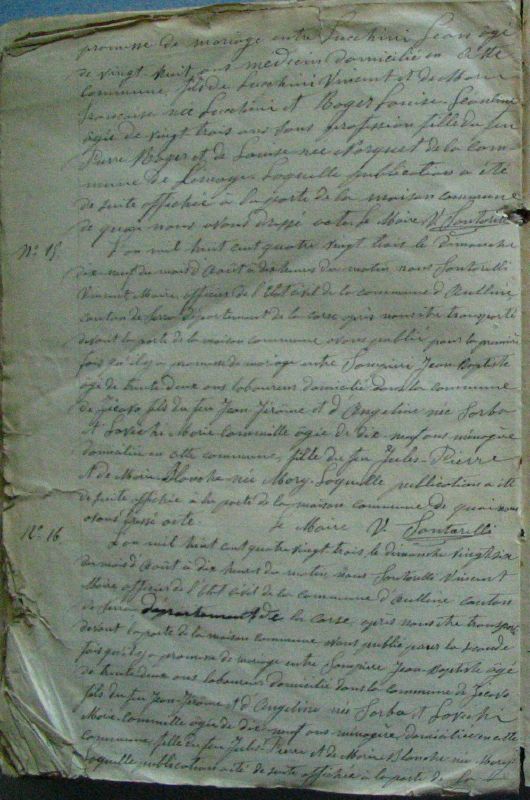 promesse de mariage entre Lucchini Jean âgé
de vingt huit ans médecin domicilié en cette
commune, fils de Lucchini Vincent et de Marie
Françoise née Lucchini et Roger Louise Léontine
âgée de vingt trois ans sans profession fille du feu
Pierre Roger et de Louise née de la com-
mune de Limoges Laquelle publication a été
de suite affichée à la porte de la maison commune
de quoi nous avons dressé acte. Le Maire V. Santarelli
N° 15 L'an mil huit cent quatre vingt trois le dimanche
dix neuf du mois d'Août à dix heures du matin nous Santarelli
Vincent Maire officier de l'Etat civil de la commune d'Aullène
canton de Serra département de la Corse, après nous être transporté
devant la porte de la maison commune avons publié pour la première
fois qu'il y a promesse de mariage entre Jean Baptiste
âgé de trente deux ans laboureur domicilié dans la commune
de Zicavo fils du feu Jean Jérôme et d'Angeline née Sorba
et Marie Camille âgée de dix neuf ans ménagère
domiciliée en cette commune, fille du feu Jules-Pierre
et de Marie Blanche née Laquelle publication a été
de suite affichée à la porte de la maison commune de quoi nous
avons dressé acte. Le Maire V. Santarelli
N° 16 L'an mil huit cent quatre vingt trois le dimanche vingt six
du mois d'Août à dix heures du matin nous Santarelli Vincent
Maire officier de l'Etat civil de la commune d'Aullène canton
de Serra département de la Corse, après nous être transporté
devant la porte de la maison commune avons publié pour la seconde
fois qu'il y a promesse de mariage entre Jean-Baptiste âgé
de trente deux ans laboureur domicilié dans la commune de Zicavo
fils du feu Jean-Jérôme et d'Angeline née Sorba et
Marie Camille âgée de dix neuf ans ménagère, domiciliée en cette
commune, fille du feu Jules-Pierre et de Marie Blanche née
Laquelle publication a été de suite affichée à la porte de la